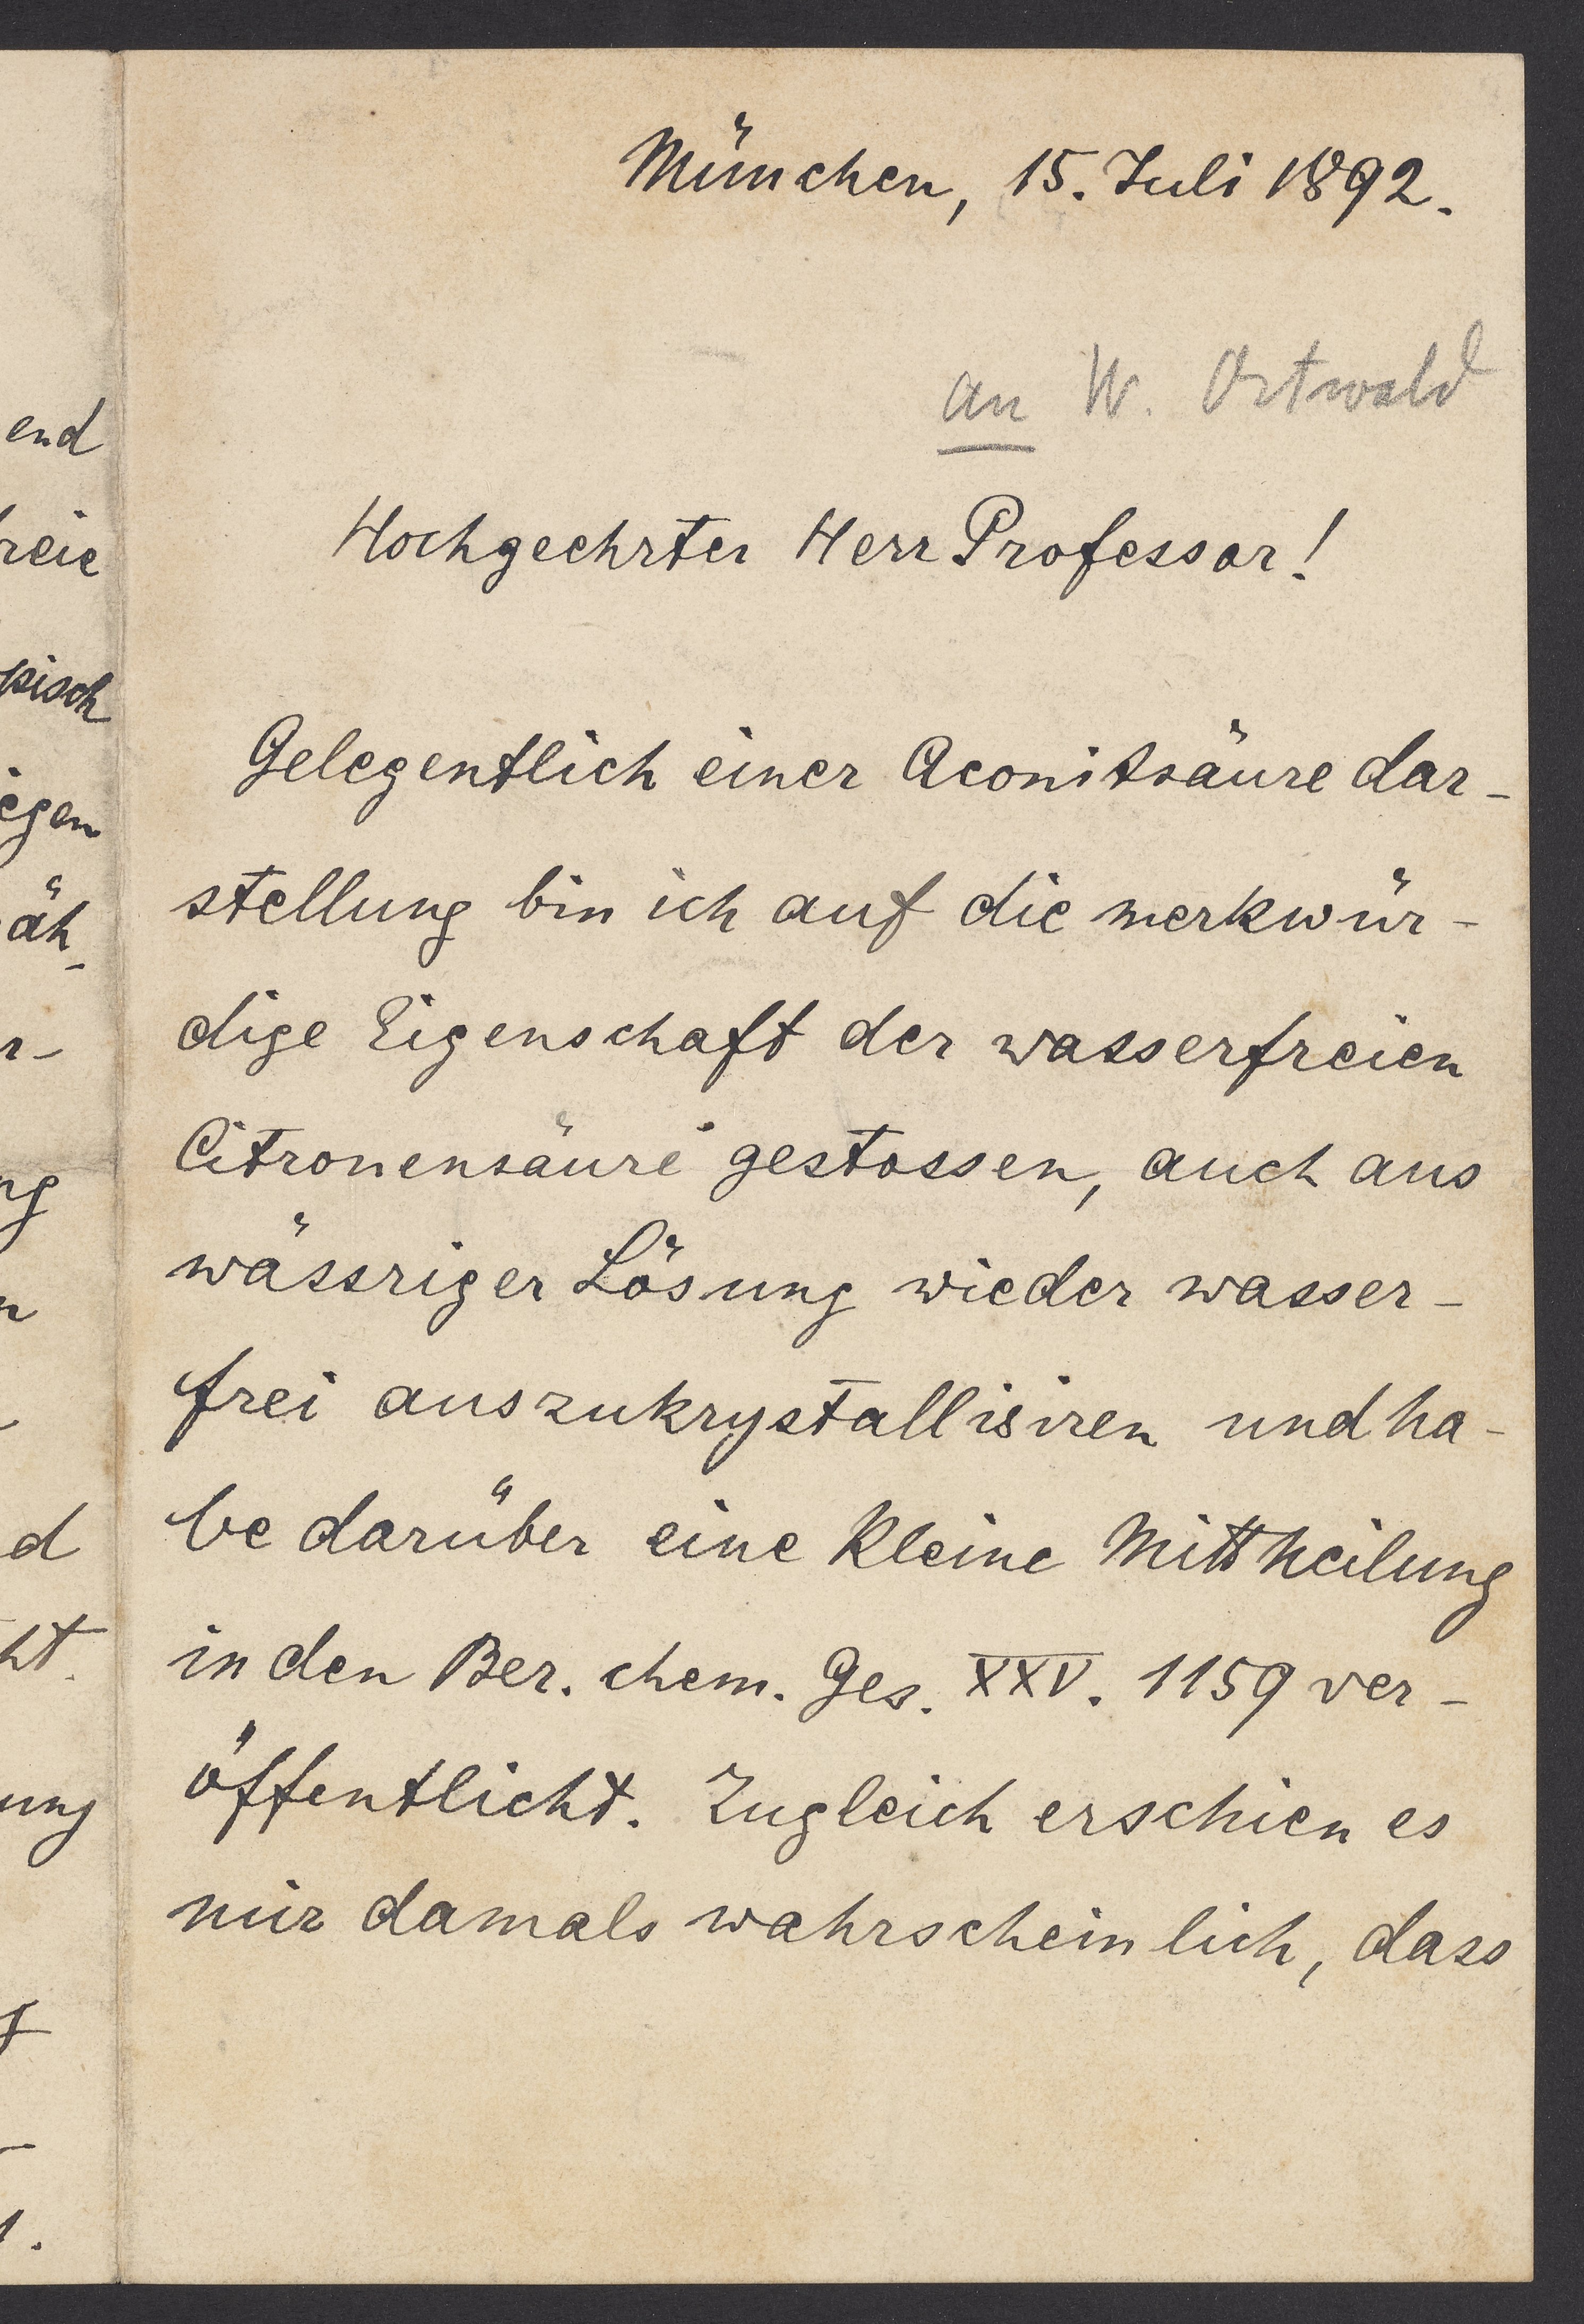 end
reie
pisch
egen
äh-
r-
ng
n
d
ht.
ung
München, 15. Juli 1892.
an W. Ostwald
Hochgeehrter Herr Professor!
Gelegentlich einer Aconitsäuredar-
stellung bin ich auf die merkwür-
dige Eigenschaft der wasserfreien
Citronensäure gestossen, auch aus
wässriger Lösung wieder wasser-
frei auszukrystallisiren und ha-
be darüber eine kleine Mittheilung
in den Ber. chem. Ges. XXV. 1159 ver-
öffentlicht. Zugleich erschien es
mir damals wahrscheinlich, dass